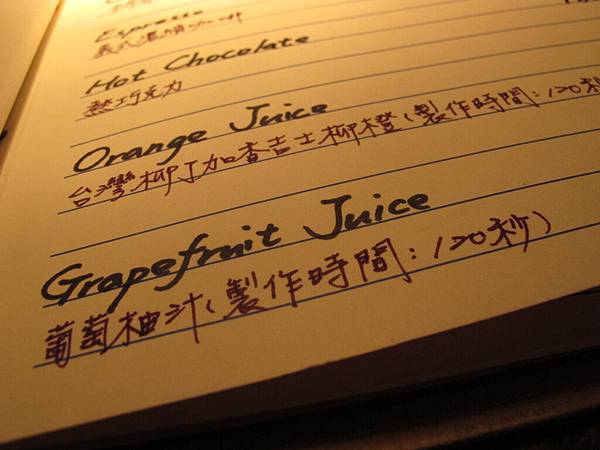 Espresso
義式濃縮咖啡
Hot Chocolate
熱巧克力
Orange Juice
台灣柳丁加香吉士柳橙(製作時間:120秒
Grapefruit Juice
葡萄柚汁(製作時間:120秒)